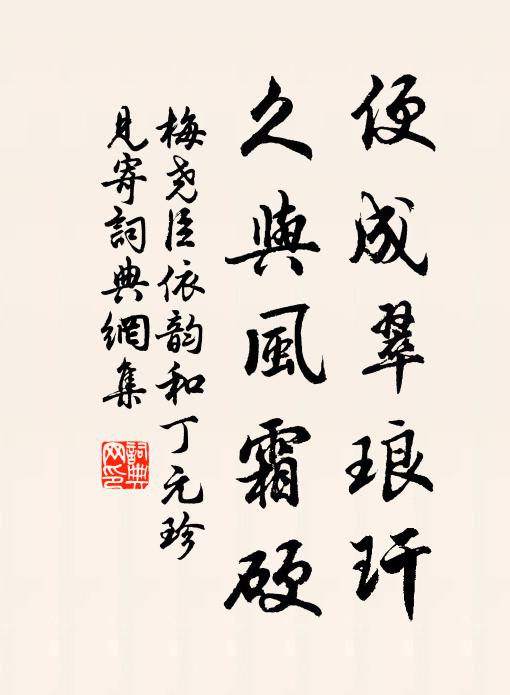 便成翠琅玕
久與風霜硬
梅堯臣依韵和丁元珍
見寄詞典網集
詞典网印